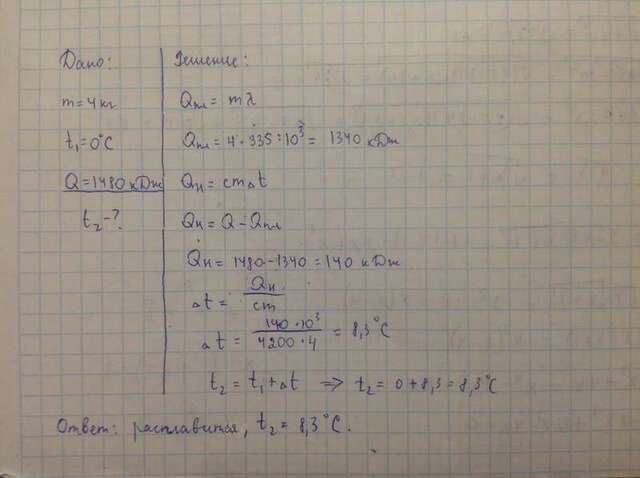 Дано:
m = 4 кг
t₁ = 0°C
Q = 1480 кДж
t₂ - ?
Решение:
Qпл = mλ
Qпл = 4 · 335 · 10³ = 1340 кДж
Qн = cm△t
Qн = Q - Qпл
Qн = 1480 - 1340 = 140 кДж
△t = Qн / cm
△t = 140 · 10³ / 4200 · 4 = 8,3°C
t₂ = t₁ + △t => t₂ = 0 + 8,3 = 8,3°C
Ответ: расплавится, t₂ = 8,3°C.